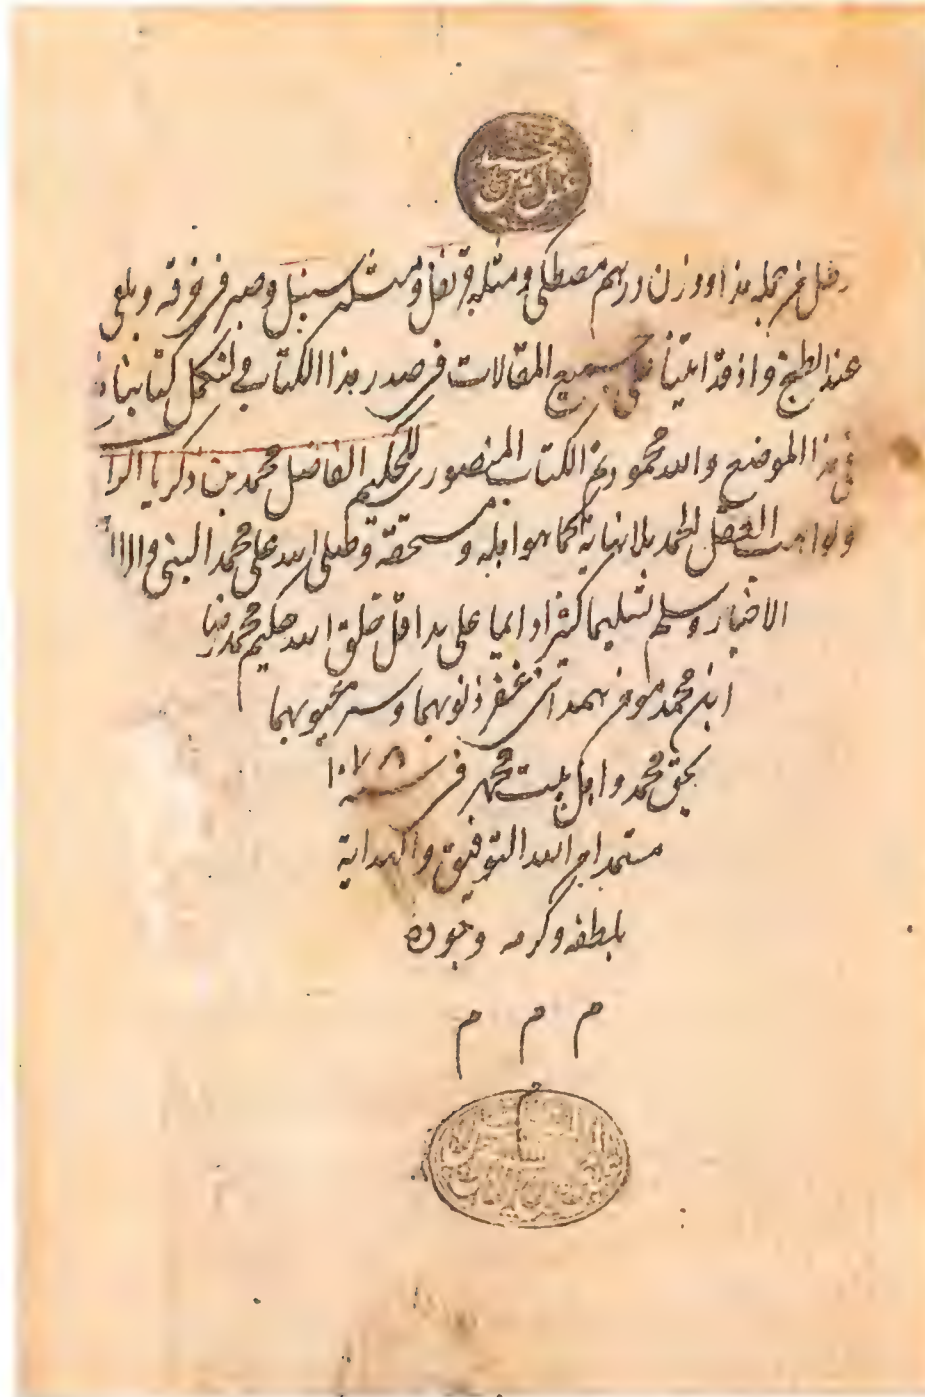 رطل من جملة هذا ووزن درهم مصطكى ومثله قرنفل ومثله سنبل وصير في خرقة ويلقى
عند الطبخ واذ قد اتينا على جميع المقالات في صدر هذا الكتاب فلنكمل كتابنا
في هذا الموضع والله محمود تم الكتاب المنصوري للحكيم الفاضل محمد بن زكريا الرا
ولواهب العقل الحمد بلا نهاية كما هو اهله ومستحقه وصلى الله على محمد النبي و
الاخيار وسلم تسليما كثيرا دايما على يد اقل خلق الله حكيم محمد رضا
ابن محمد مومن همدانى غفر ذنوبهما وستر عيوبهما
بحق محمد واهل بيت محمد فى سنه ١٠٧٨
مستمدا من الله التوفيق والهداية
بلطفه وكرمه وجوده
م م م